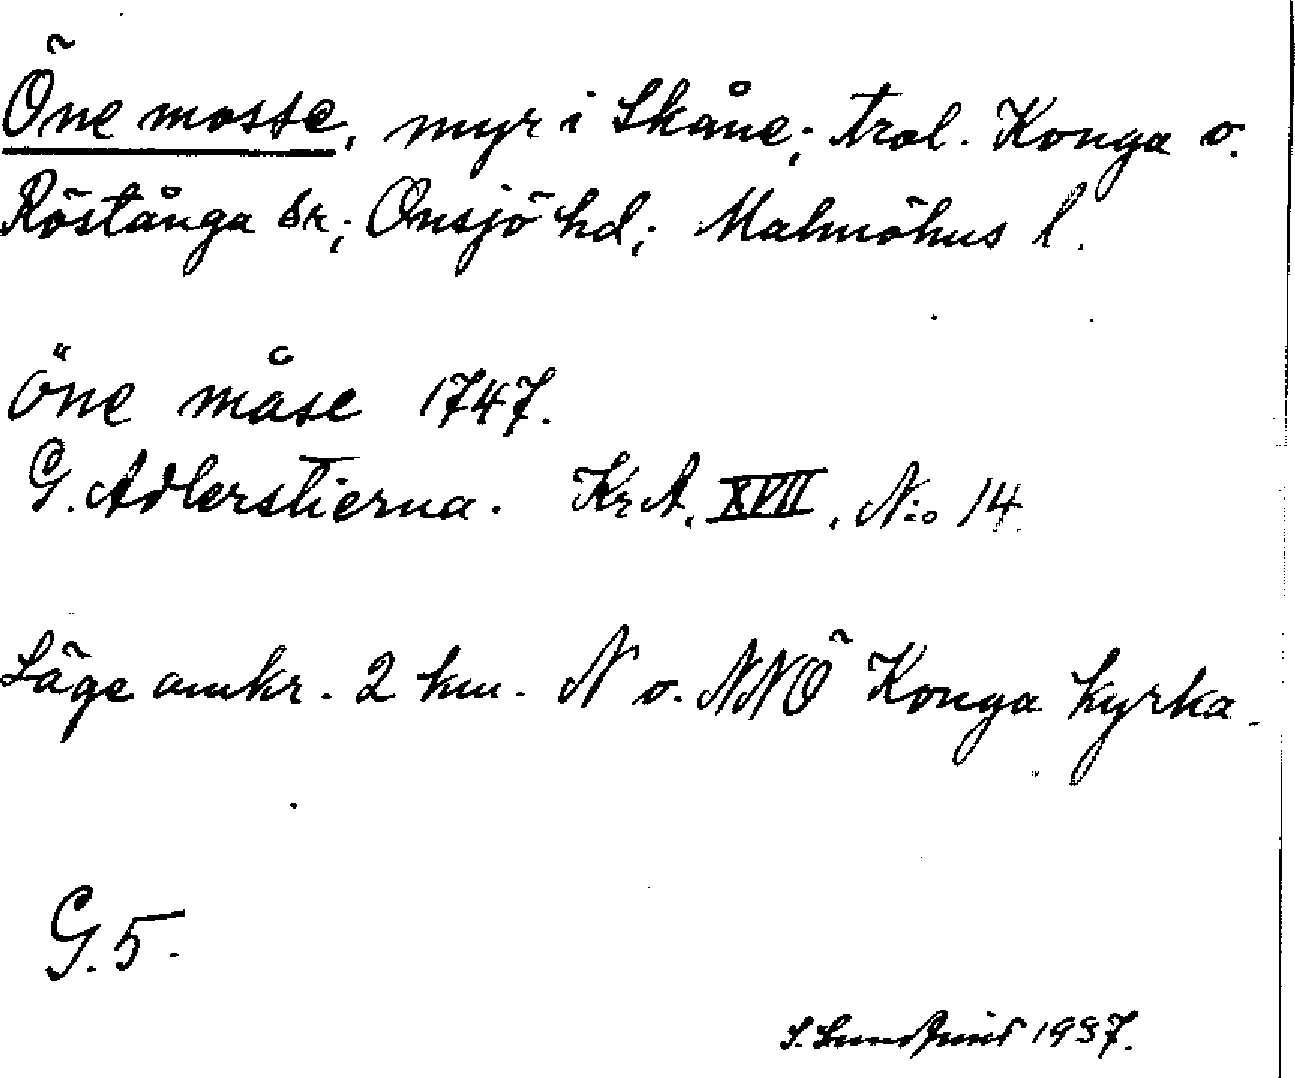 Öne mosse, myr i Skåne; trol. Konga o.
Röstånga sr; Onsjö hd; Malmöhus l.
öne måse 1747.
G. Adlerstierna. KrA. XVII, N:o 14
Läge omkr. 2 km. N o. NNÖ Konga kyrka.
G. 5.
S. 1937.